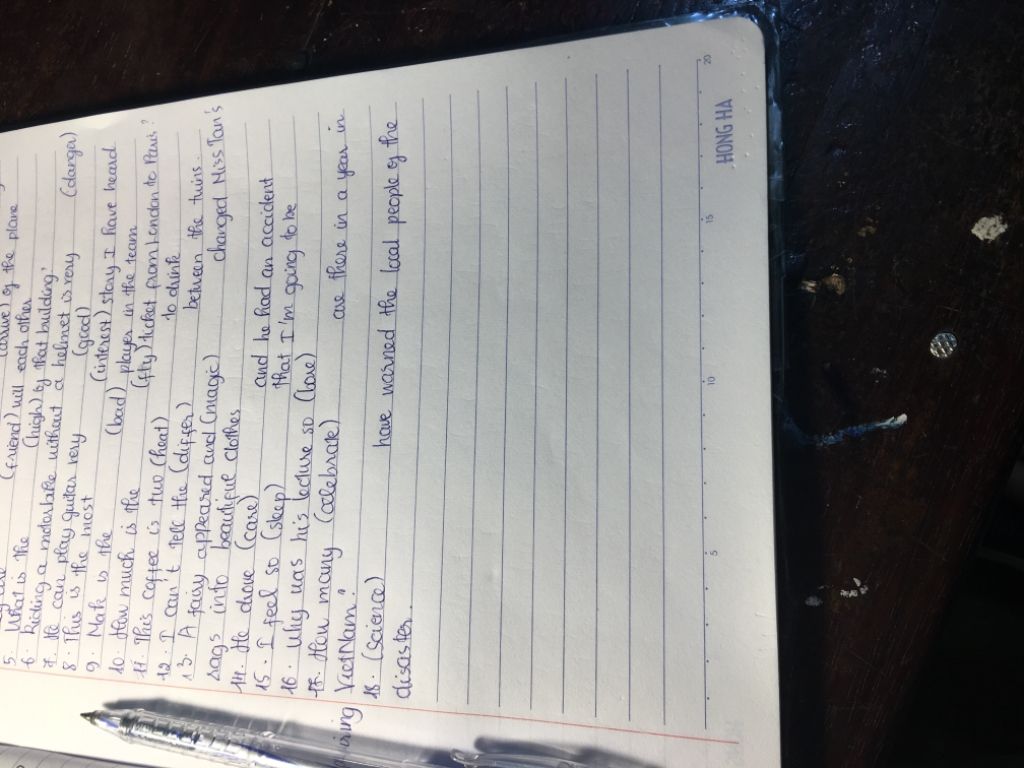 (friend) will each other
5. What is the (high) by that building?
6. Riding a motorbike without a helmet is very (danger)
7. He can play guitar very (good)
8. This is the most (interest) story I have heard
9. Nate is the (bad) player in the team
10. How much is the (fly) ticket from London to Paris?
11. This coffee is two (heat) to drink
12. I can't tell the (differ) between the twins.
13. A fairy appeared and (magic) changed Miss Tan's
rags into beautiful clothes
14. He drove (care) and he had an accident
15. I feel so (sleep) that I'm going to be
16. Why was his lecture so (bore)
17. How many (celebrate) are there in a year in
VietNam?
18. (science) have warned the local people of the
disaster.
5
10
15
20
HONG HA